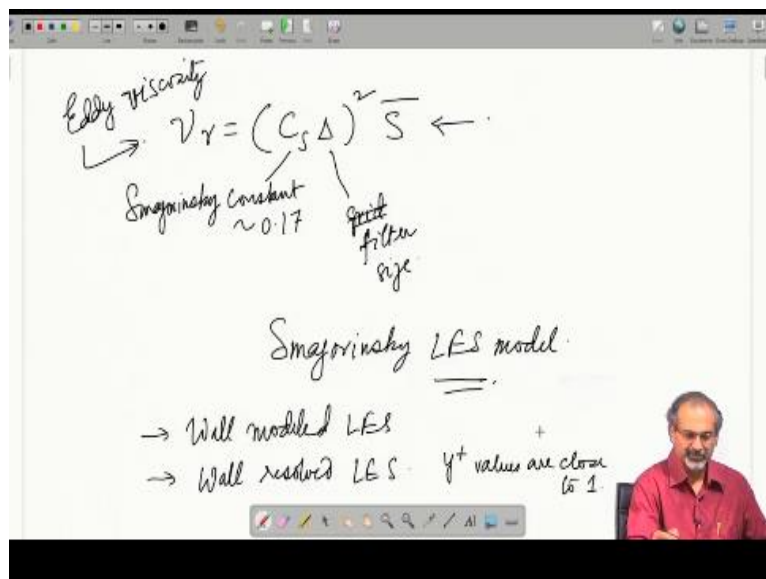 Eddy viscosity
ν_r = (C_s Δ)² S̅ ←
Smagorinsky constant
~ 0.17
grid
filter
size
Smagorinsky LES model.
→ Wall modeled LES
→ Wall resolved LES. y⁺ values are close
to 1.